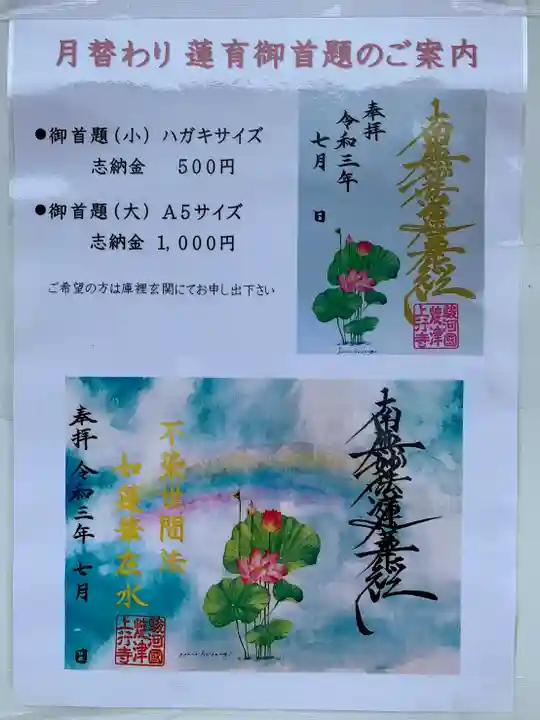 月替わり 蓮育御首題のご案内
●御首題(小) ハガキサイズ
志納金 500円
●御首題(大) A5サイズ
志納金 1,000円
ご希望の方は庫裡玄関にてお申し出下さい
奉拝
令和三年
七月 日
南無妙法蓮華経
駿河國
沼津
上行寺
奉拝 令和三年 七月 日
不染世間法
如蓮華在水
南無妙法蓮華経
駿河國
沼津
上行寺